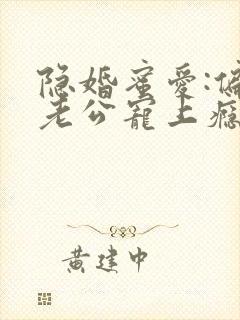 隐婚蜜爱:偏
老公宠上瘾
黄建中